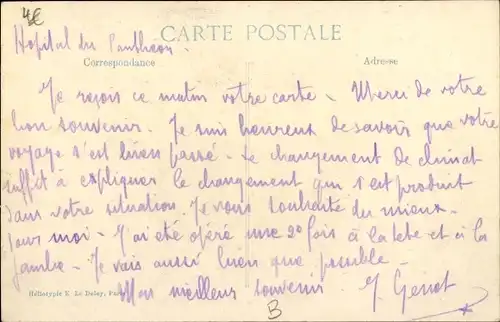 4€
Hopital du Panthéon.
CARTE POSTALE
Correspondance
Adresse
Je reçois ce matin votre carte - Merci de votre
bon souvenir. Je suis heureux de savoir que votre
voyage s'est bien passé - Le changement de climat
suffit à expliquer le changement qui s'est produit
dans votre situation. Je vous souhaite du mieux -
Pour moi - J'ai été opéré une 2e fois à la tête et à la
jambe - Je vais aussi bien que possible -
Mon meilleur souvenir
Héliotypie E. Le Deley, Paris
B